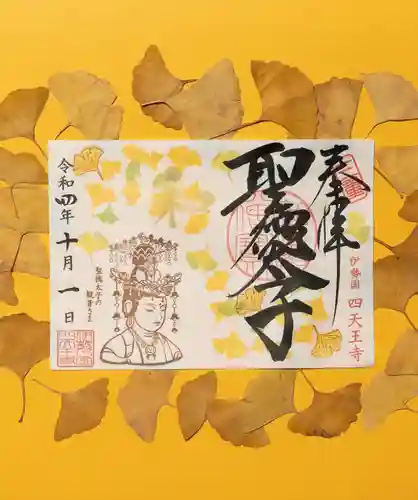 奉拝
聖徳太子
伊勢國 四天王寺
聖徳太子の
観音さま
令和四年十月一日